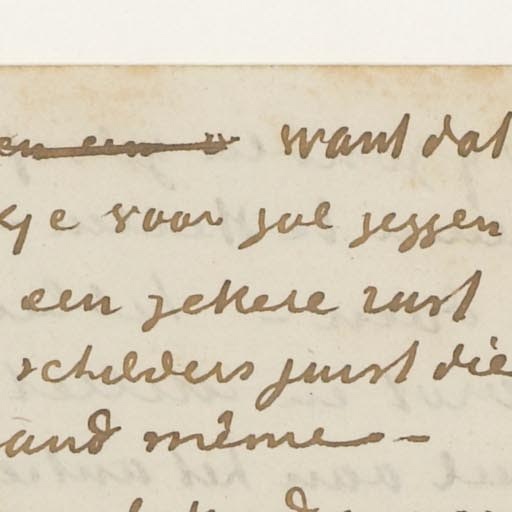 want dat
voor zal zeggen
een zekere rust
schilders juist die
même –